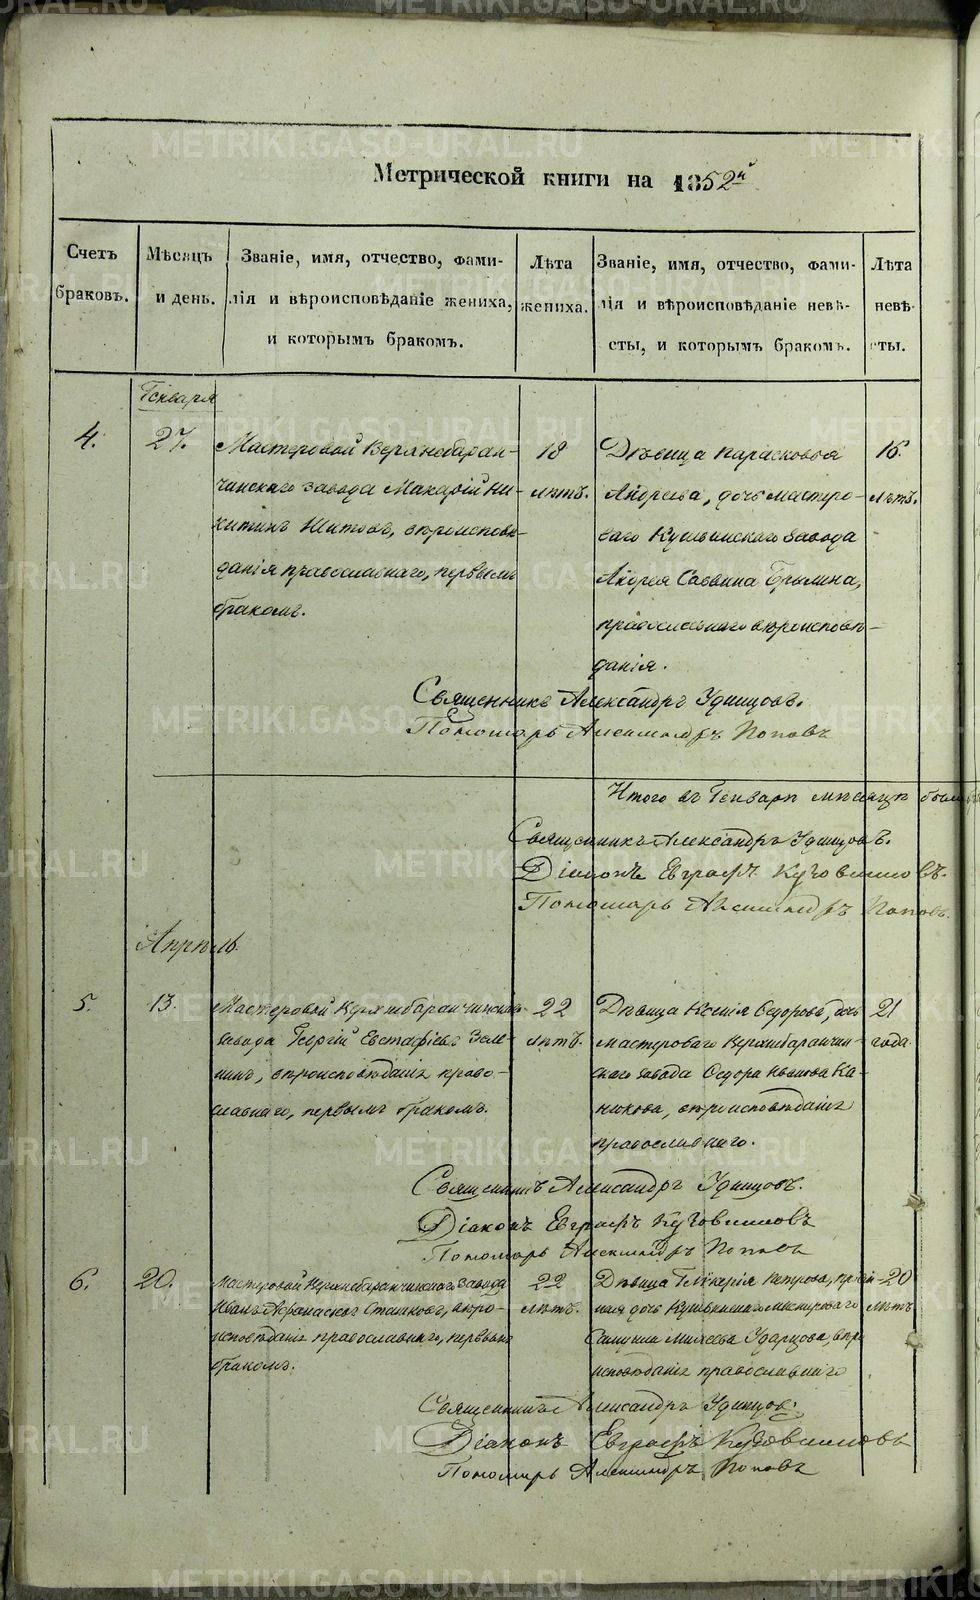 Метрической книги на 1852й
Счетъ браковъ.
Мѣсяцъ и день.
Званіе, имя, отчество, фами-
лія и вѣроисповѣданіе жениха,
и которымъ бракомъ.
Лѣта жениха.
Званіе, имя, отчество, фами-
лія и вѣроисповѣданіе невѣ-
сты, и которымъ бракомъ.
Лѣта невѣ-
сты.
Генваря
4.
27.
Мастеровой Верхнебаран-
чинскаго завода Макарій Ни-
китинъ Шитовъ, вѣроисповѣ-
данія православнаго, первымъ
бракомъ.
18
лѣтъ.
Дѣвица Парасковья
Андреева, дочь мастеро-
ваго Кушвинскаго завода
Андрея Саввина
православнаго вѣроисповѣ-
данія.
16.
лѣтъ.
Священникъ Александръ Удинцовъ.
Пономарь Александръ Поповъ
Итого въ Генварѣ мѣсяцѣ было
Священникъ Александръ Удинцовъ.
Діаконъ Евграфъ
Пономарь Александръ Поповъ.
Апрѣль.
5.
13.
Мастеровой Верхнебаранчинскаго
завода Георгій Евстафіевъ Зеле-
нинъ, вѣроисповѣданія право-
славнаго, первымъ бракомъ.
22
лѣтъ.
Дѣвица Ксенія Ѳедорова, дочь
мастероваго Верхнебаранчин-
скаго завода Ѳедора Иванова Ка-
никова, вѣроисповѣданія
православнаго.
21
года
Священникъ Александръ Удинцовъ.
Діаконъ Евграфъ
Пономарь Александръ Поповъ
6.
20.
Мастеровой Верхнебаранчинскаго завода
Иванъ Аѳанасіевъ вѣро-
исповѣданія православнаго, первымъ
бракомъ.
22
лѣтъ.
Дѣвица Гликерія Петрова, пріем-
ная дочь Кушвинскаго мастероваго
Ударцова, вѣро
исповѣданія православнаго
20
лѣтъ
Священникъ Александръ Удинцовъ.
Діаконъ Евграфъ
Пономарь Александръ Поповъ
METRIKI.GASO-URAL.RU